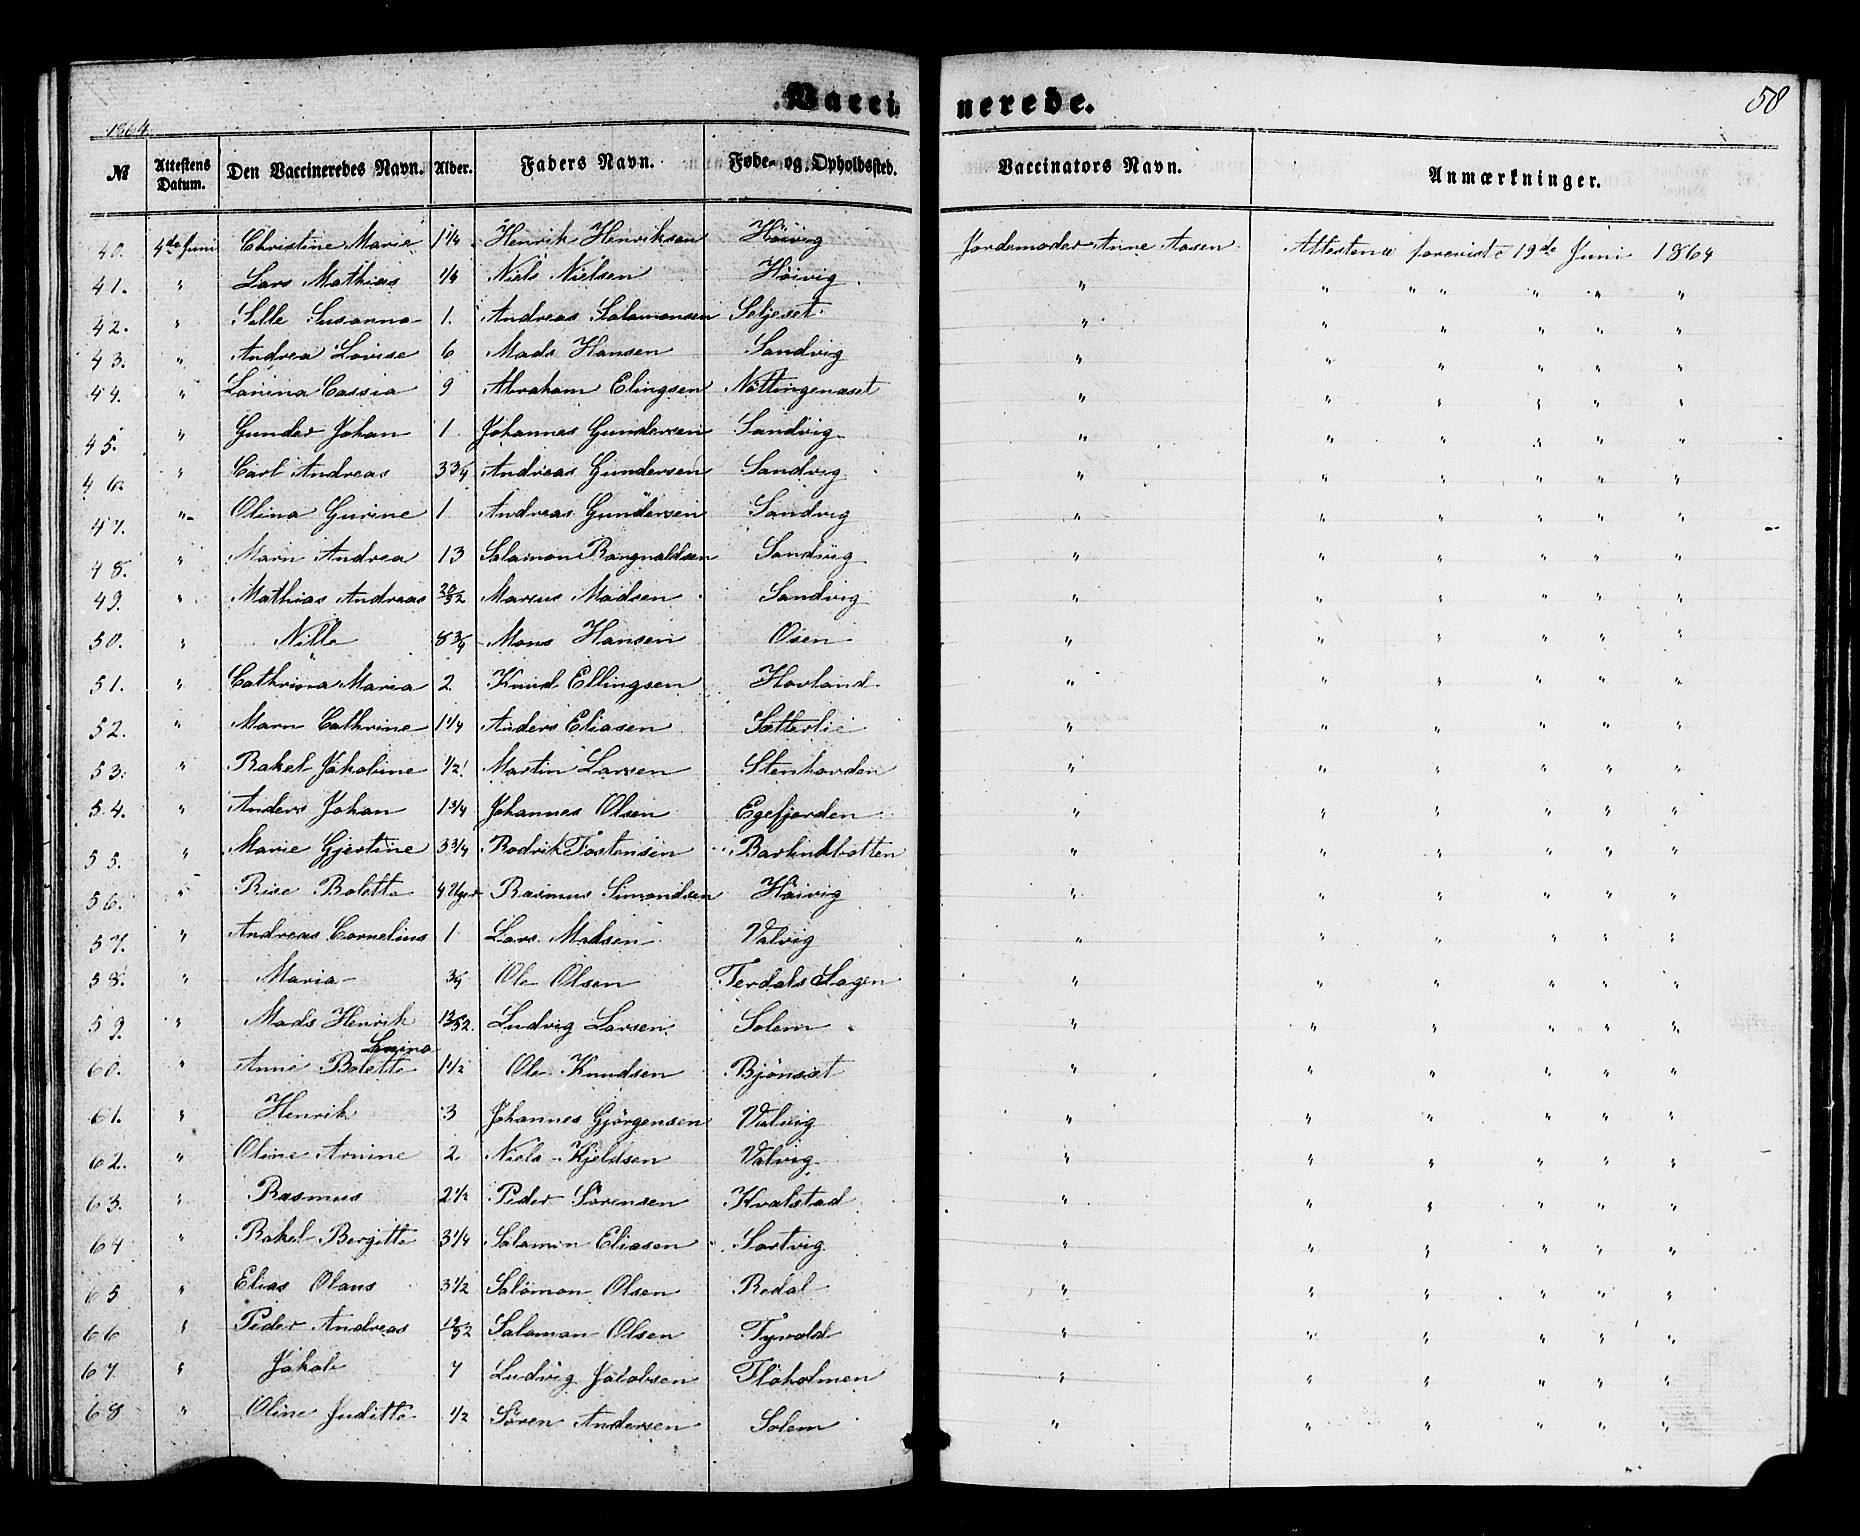 Vaccinerede.
58
1864.
№ Attestens Datum. Den Vaccineredes Navn. Alder. Faders Navn. Føde- og Opholdssted. Vaccinators Navn. Anmærkninger.
40. 4de Juni Christine Marie 1 1/4 Henrik Henriksen Höivig Jordemoder Anne Aasen Attesterne foreviste 19de Juni 1864
41. " Lars Mathias 1/4 Niels Nielsen Höivig " " " " " " "
42. " Sille Susanna 1. Andreas Salamonsen Seljeset " " " " " "
43. " Andrea Lovise 6 Mads Hansen Sandvig " " " " " "
44. " Lanina Cassia 9 Abraham Elingsen Nöttingenæset " " " " " "
45. " Gunder Johan 1. Johannes Gundersen Sandvig " " " " " "
46. " Carl Andreas 3 3/4 Andreas Gundersen Sandvig " " " " " "
47. " Olina Gurine 1 Andreas Gundersen Sandvig " " " " " "
48. " Marn Andrea 13 Salamon Rangnaldsen Sandvig " " " " " "
49. " Mathias Andreas 20/52 Marcus Madsen Sandvig " " " " " "
50. " Nille 8 3/4 Mons Hansen Osen " " " " " "
51. " Cathrina Maria 2. Knud Ellingsen Hovland " " " " " "
52. " Marn Cathrine 1 1/4 Anders Eliasen Sætterlie " " " " " "
53. " Rakel Jakobine 1/2 Martin Larsen Stenhovden " " " " " "
54. " Anders Johan 1 3/4 Johannes Olsen Egefjorden " " " " " "
55. " Marie Gjertine 3 3/4 Rodrik Tostensen Barlindbotten " " " " " "
56. " Rise Bolette 4 Uger Rasmus Simondsen Höivig " " " " " "
57. " Andreas Cornelius 1 Lars Madsen Valvig " " " " " "
58. " Maria 3/4 Ole Olsen Terdals Slagen " " " " " "
59. " Mads Henrik 12/52 Ludvig Larsen Solem " " " " " "
Lanina
60. " Anne Bolette 1 1/2 Ole Knudsen Bjönset " " " " " "
61. " Henrik 3 Johannes Gjörgensen Valvig " " " " " "
62. " Oline Arnine 2 Niels Kjeldsen Valvig " " " " " "
63. " Rasmus 2 1/2 Peder Sörensen Kvalstad " " " " " "
64 " Rakel Bergitte 3 1/4 Salamon Eliasen Sortvig " " " " " "
65 " Elias Olaus 3 1/2 Salomon Olsen Redal " " " " " "
66 " Peder Andreas 12/52 Salamon Olsen Tyvold " " " " " "
67. " Jakob 7 Ludvig Jacobsen Flöholmen " " " " " "
68 " Oline Juditte 1/2 Sören Andersen Solem " " " " " "